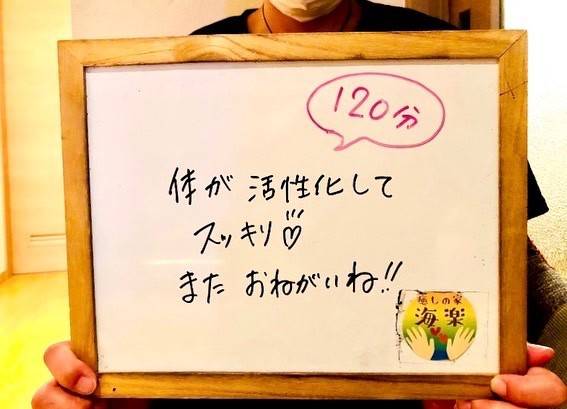 120分
体が 活性化して
スッキリ♡
また おねがいね!!
癒しの家
海楽